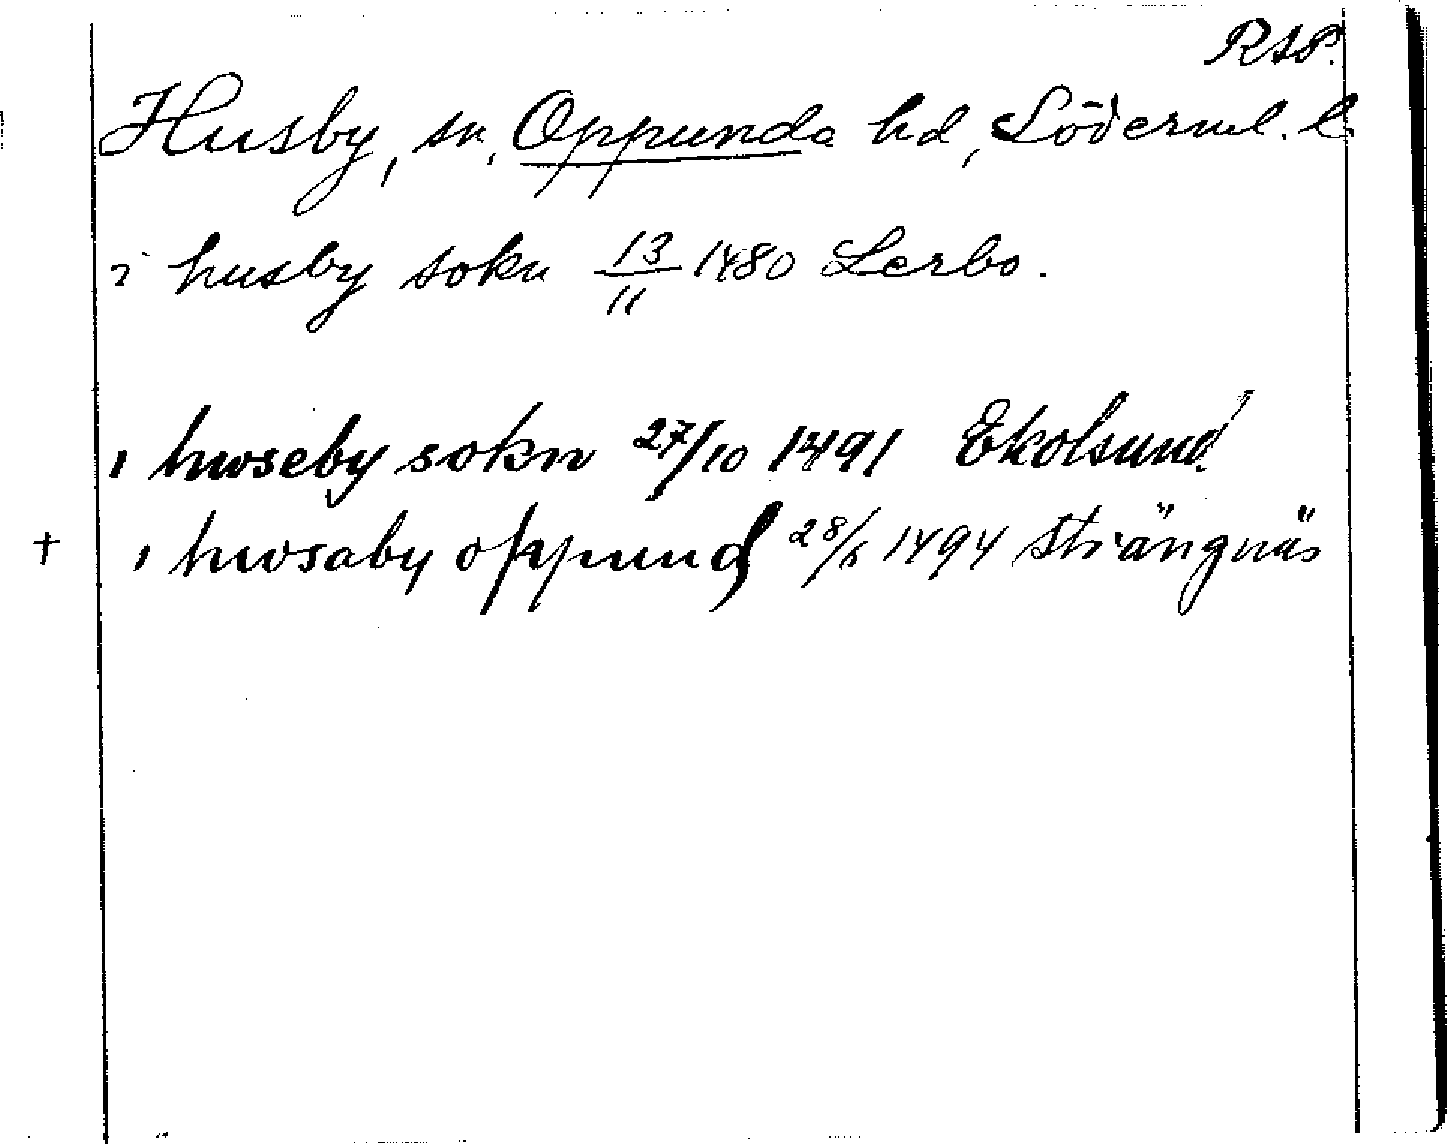 RAP.
Husby, sn, Oppunda hd, Söderml. l.
i husby sokn 13/11 1480 Lerbo.
i hwseby sokn 27/10 1491 Ekolsund
+ i hwsaby oppund 28/6 1494 Strängnäs